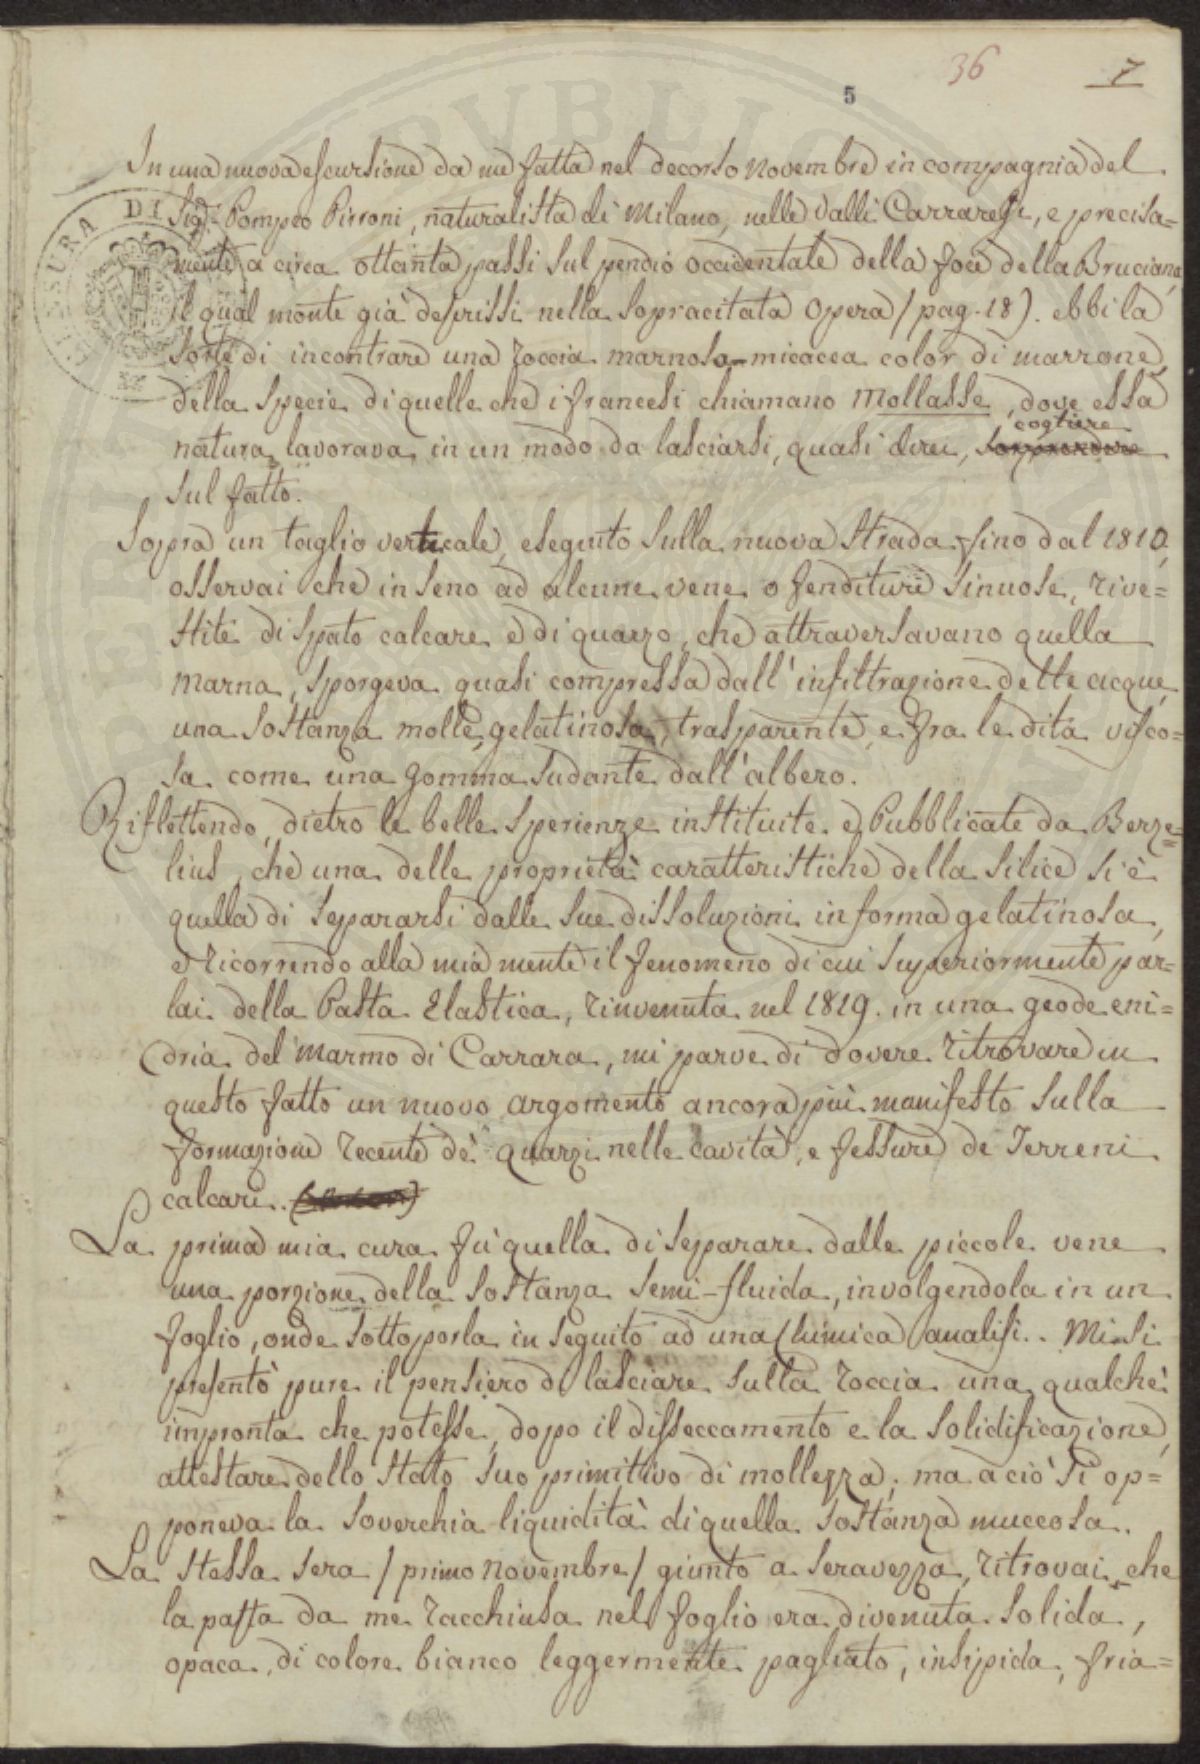 36 7
5
In una nuova escursione da me fatta nel decorso Novembre in compagnia del
Sigr. Pompeo Pirroni, naturalista di Milano, nelle Valli Carraresi, e precisa=
mente a circa ottanta passi sul pendio occidentale della foce della Bruciana,
il qual monte già descrissi nella Sopracitata Opera / pag. 18). ebbi la
sorte di incontrare una roccia marnosa-micacea color di marrone,
della specie di quelle che i francesi chiamano Mollasse, dove essa
cogliere
natura lavorava in un modo da lasciarsi, quasi direi, sorprendere
sul fatto.
Sopra un taglio verticale, eseguito sulla nuova strada fino dal 1810,
osservai che in seno ad alcune vene o fenditure sinuose, rive=
stite di spato calcare e di quarzo, che attraversavano quella
marna, sporgeva quasi compressa dall'infiltrazione delle acque,
una sostanza molle, gelatinosa, trasparente, e fra le dita visco=
sa come una gomma sudante dall'albero.
Riflettendo, dietro le belle sperienze instituite e Pubblicate da Berze=
lius, che una delle proprietà caratteristiche della silice si è
quella di separarsi dalle sue dissoluzioni in forma gelatinosa,
e ricorrendo alla mia mente il fenomeno di cui superiormente par=
lai della Pasta Elastica, rinvenuta nel 1819. in una geode eni=
dria del marmo di Carrara, mi parve di dovere ritrovare in
questo fatto un nuovo argomento ancora più manifesto sulla
formazione recente de' quarzi nelle cavità, e fessure de Terreni
calcari.
La prima mia cura fù quella di separare dalle piccole vene
una porzione della sostanza semi-fluida, involgendola in un
foglio, onde sottoporla in seguito ad una Chimica analisi. Mi si
presentò pure il pensiero di lasciare sulla roccia una qualche
impronta che potesse, dopo il disseccamento e la solidificazione,
attestare dello stato suo primitivo di mollezza; ma a ciò si op=
poneva la soverchia liquidità di quella sostanza muccosa.
La stessa sera / primo Novembre / giunto a Seravezza, ritrovai che
la pasta da me racchiusa nel foglio era divenuta solida,
opaca, di colore bianco leggermente pagliato, insipida, fria=